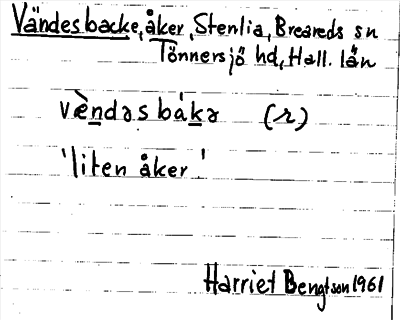 Vändesbacke, åker, Stenlia, Breareds sn
Tönnersjö hd, Hall. län
vèndəsbákə (r)
'liten åker'
Harriet Bengtson 1961